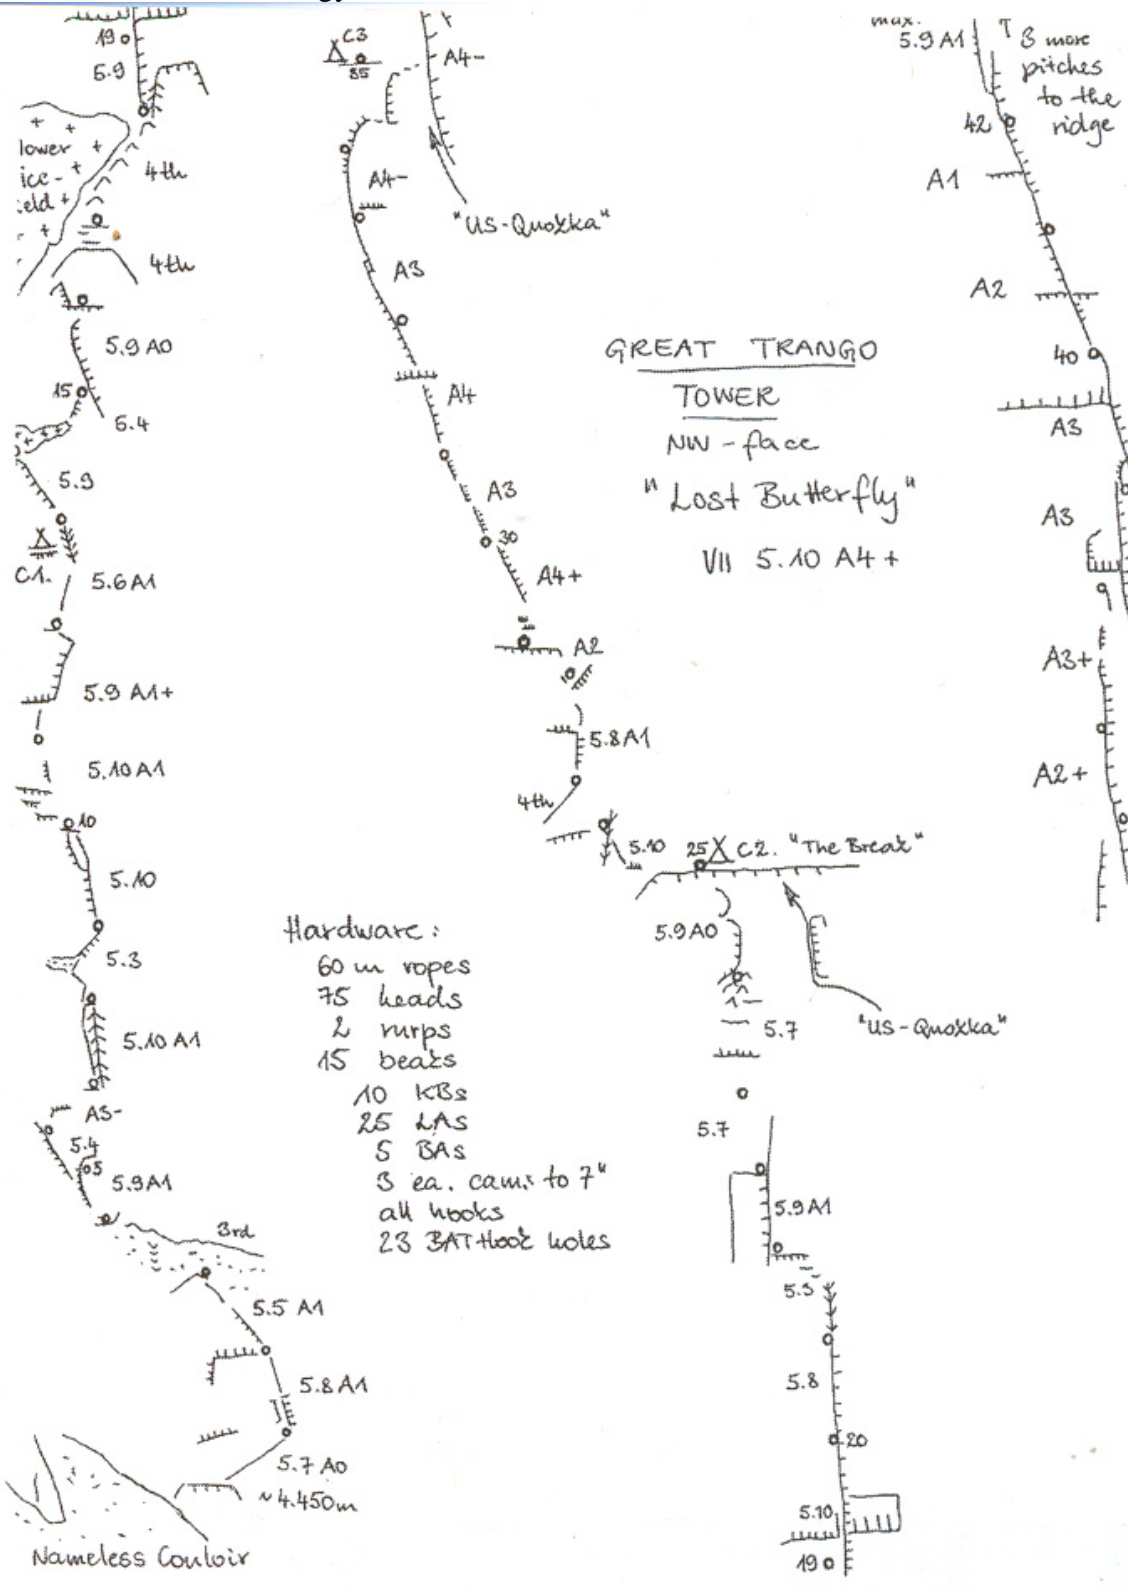 19
5.9
lower
ice-
4th
4th
5.9 A0
15
5.4
5.9
C1.
5.6 A1
5.9 A1+
5.10 A1
10
5.10
5.3
5.10 A1
A3-
5.4
5
5.9 A1
3rd
5.5 A1
5.8 A1
5.7 A0
~ 4.450m
Nameless Couloir
C3
35
A4-
A4-
"US-Quožka"
A3
A4
A3
30
A4+
A2
5.8 A1
4th
5.10
25
C2. "The Break"
5.9 A0
"US-Quožka"
5.7
5.7
5.9 A1
5.5
5.8
20
5.10
19
GREAT TRANGO
TOWER
NW - face
"Lost Butterfly"
VII 5.10 A4+
Hardware:
60 m ropes
75 heads
2 rurps
15 beaks
10 KBs
25 LAs
5 BAs
3 ea. cams to 7"
all hooks
23 BAT Hook holes
max.
5.9 A1
3 more
pitches
to the
ridge
42
A1
A2
40
A3
A3
A3+
A2+